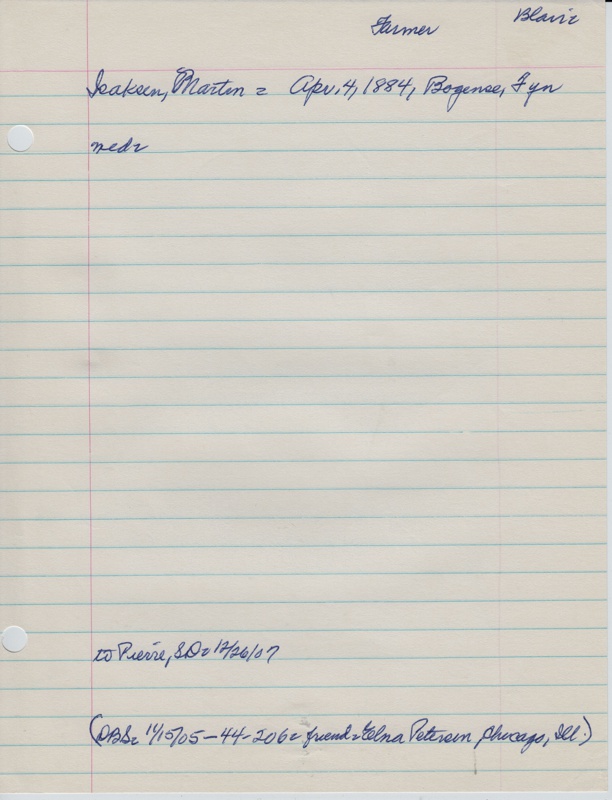 Farmer Blair=
Isaksen, Martin = Apr. 4, 1884, Bogense, Fyn
med=
to Pierre, SD= 12/26/07
(DBS= 11/15/05-44-206= friend= Elna Petersen, Chicago, Ill.)